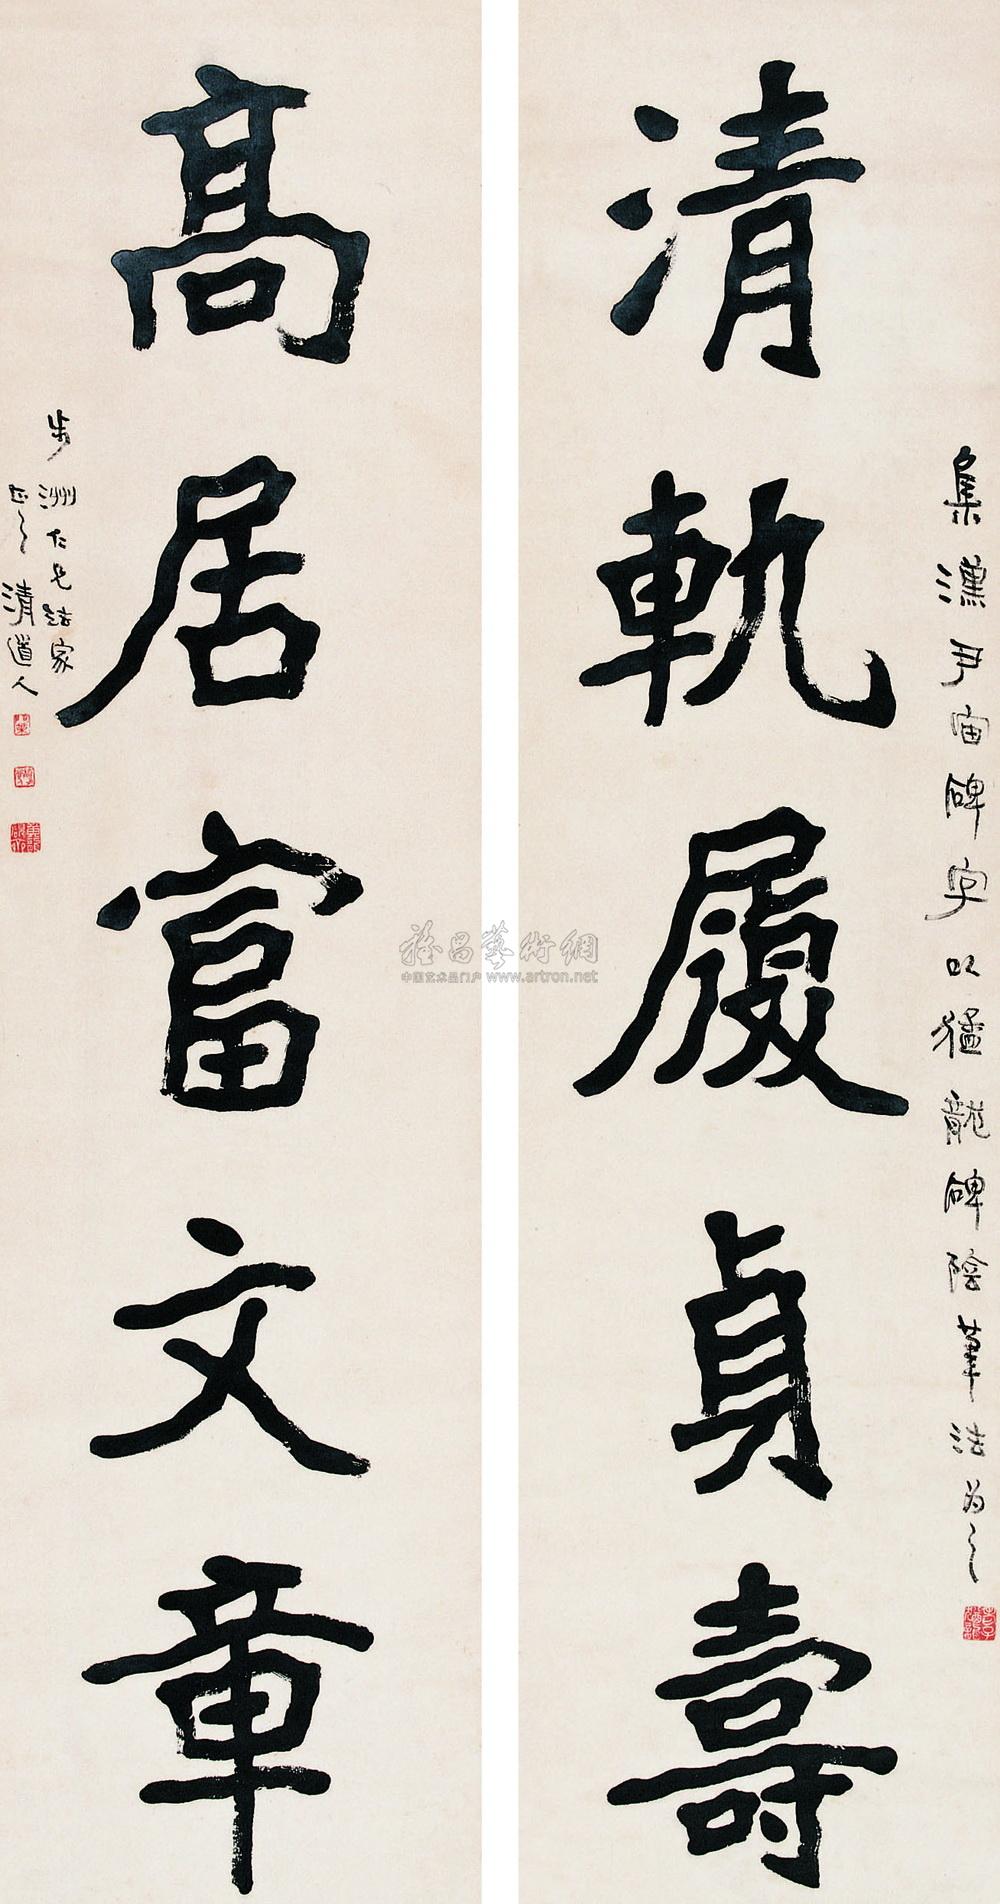 清軌履貞壽
集漢尹宙碑字以猛龍碑陰筆法为之
高居富文章
步洲仁兄法家
正之 清道人
雅昌藝術網
中国艺术品门户 www.artron.net